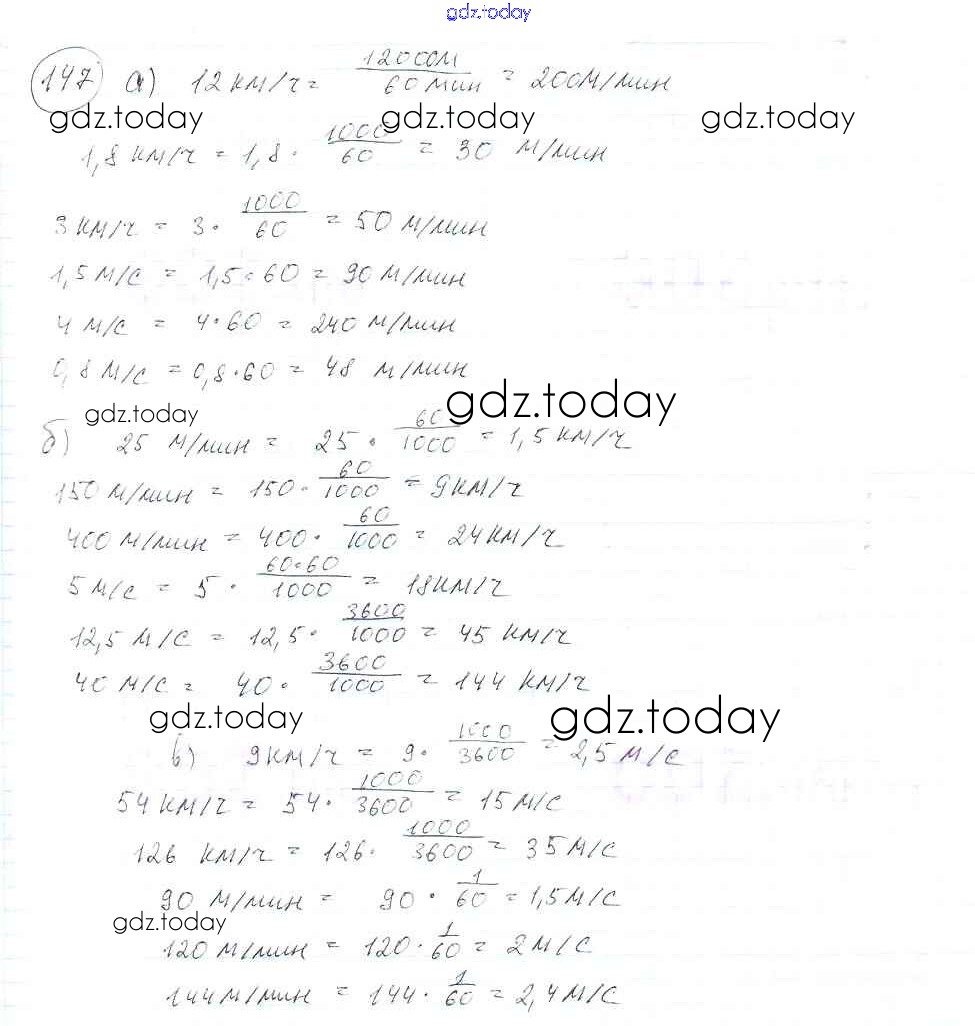 gdz.today
147 а) 12 км/ч = 12000м/60 мин = 200м/мин
gdz.today gdz.today gdz.today
1,8 км/ч = 1,8 · 1000/60 = 30 м/мин
3 км/ч = 3 · 1000/60 = 50 м/мин
1,5 м/с = 1,5 · 60 = 90 м/мин
4 м/с = 4 · 60 = 240 м/мин
0,8 м/с = 0,8 · 60 = 48 м/мин
gdz.today gdz.today
б) 25 м/мин = 25 · 60/1000 = 1,5 км/ч
150 м/мин = 150 · 60/1000 = 9км/ч
400 м/мин = 400 · 60/1000 = 24км/ч
5 м/с = 5 · 60·60/1000 = 18км/ч
12,5 м/с = 12,5 · 3600/1000 = 45 км/ч
40 м/с = 40 · 3600/1000 = 144 км/ч
gdz.today gdz.today
в) 9км/ч = 9 · 1000/3600 = 2,5 м/с
54 км/ч = 54 · 1000/3600 = 15м/с
126 км/ч = 126 · 1000/3600 = 35м/с
90 м/мин = 90 · 1/60 = 1,5м/с
gdz.today
120 м/мин = 120 · 1/60 = 2м/с
144м/мин = 144 · 1/60 = 2,4м/с